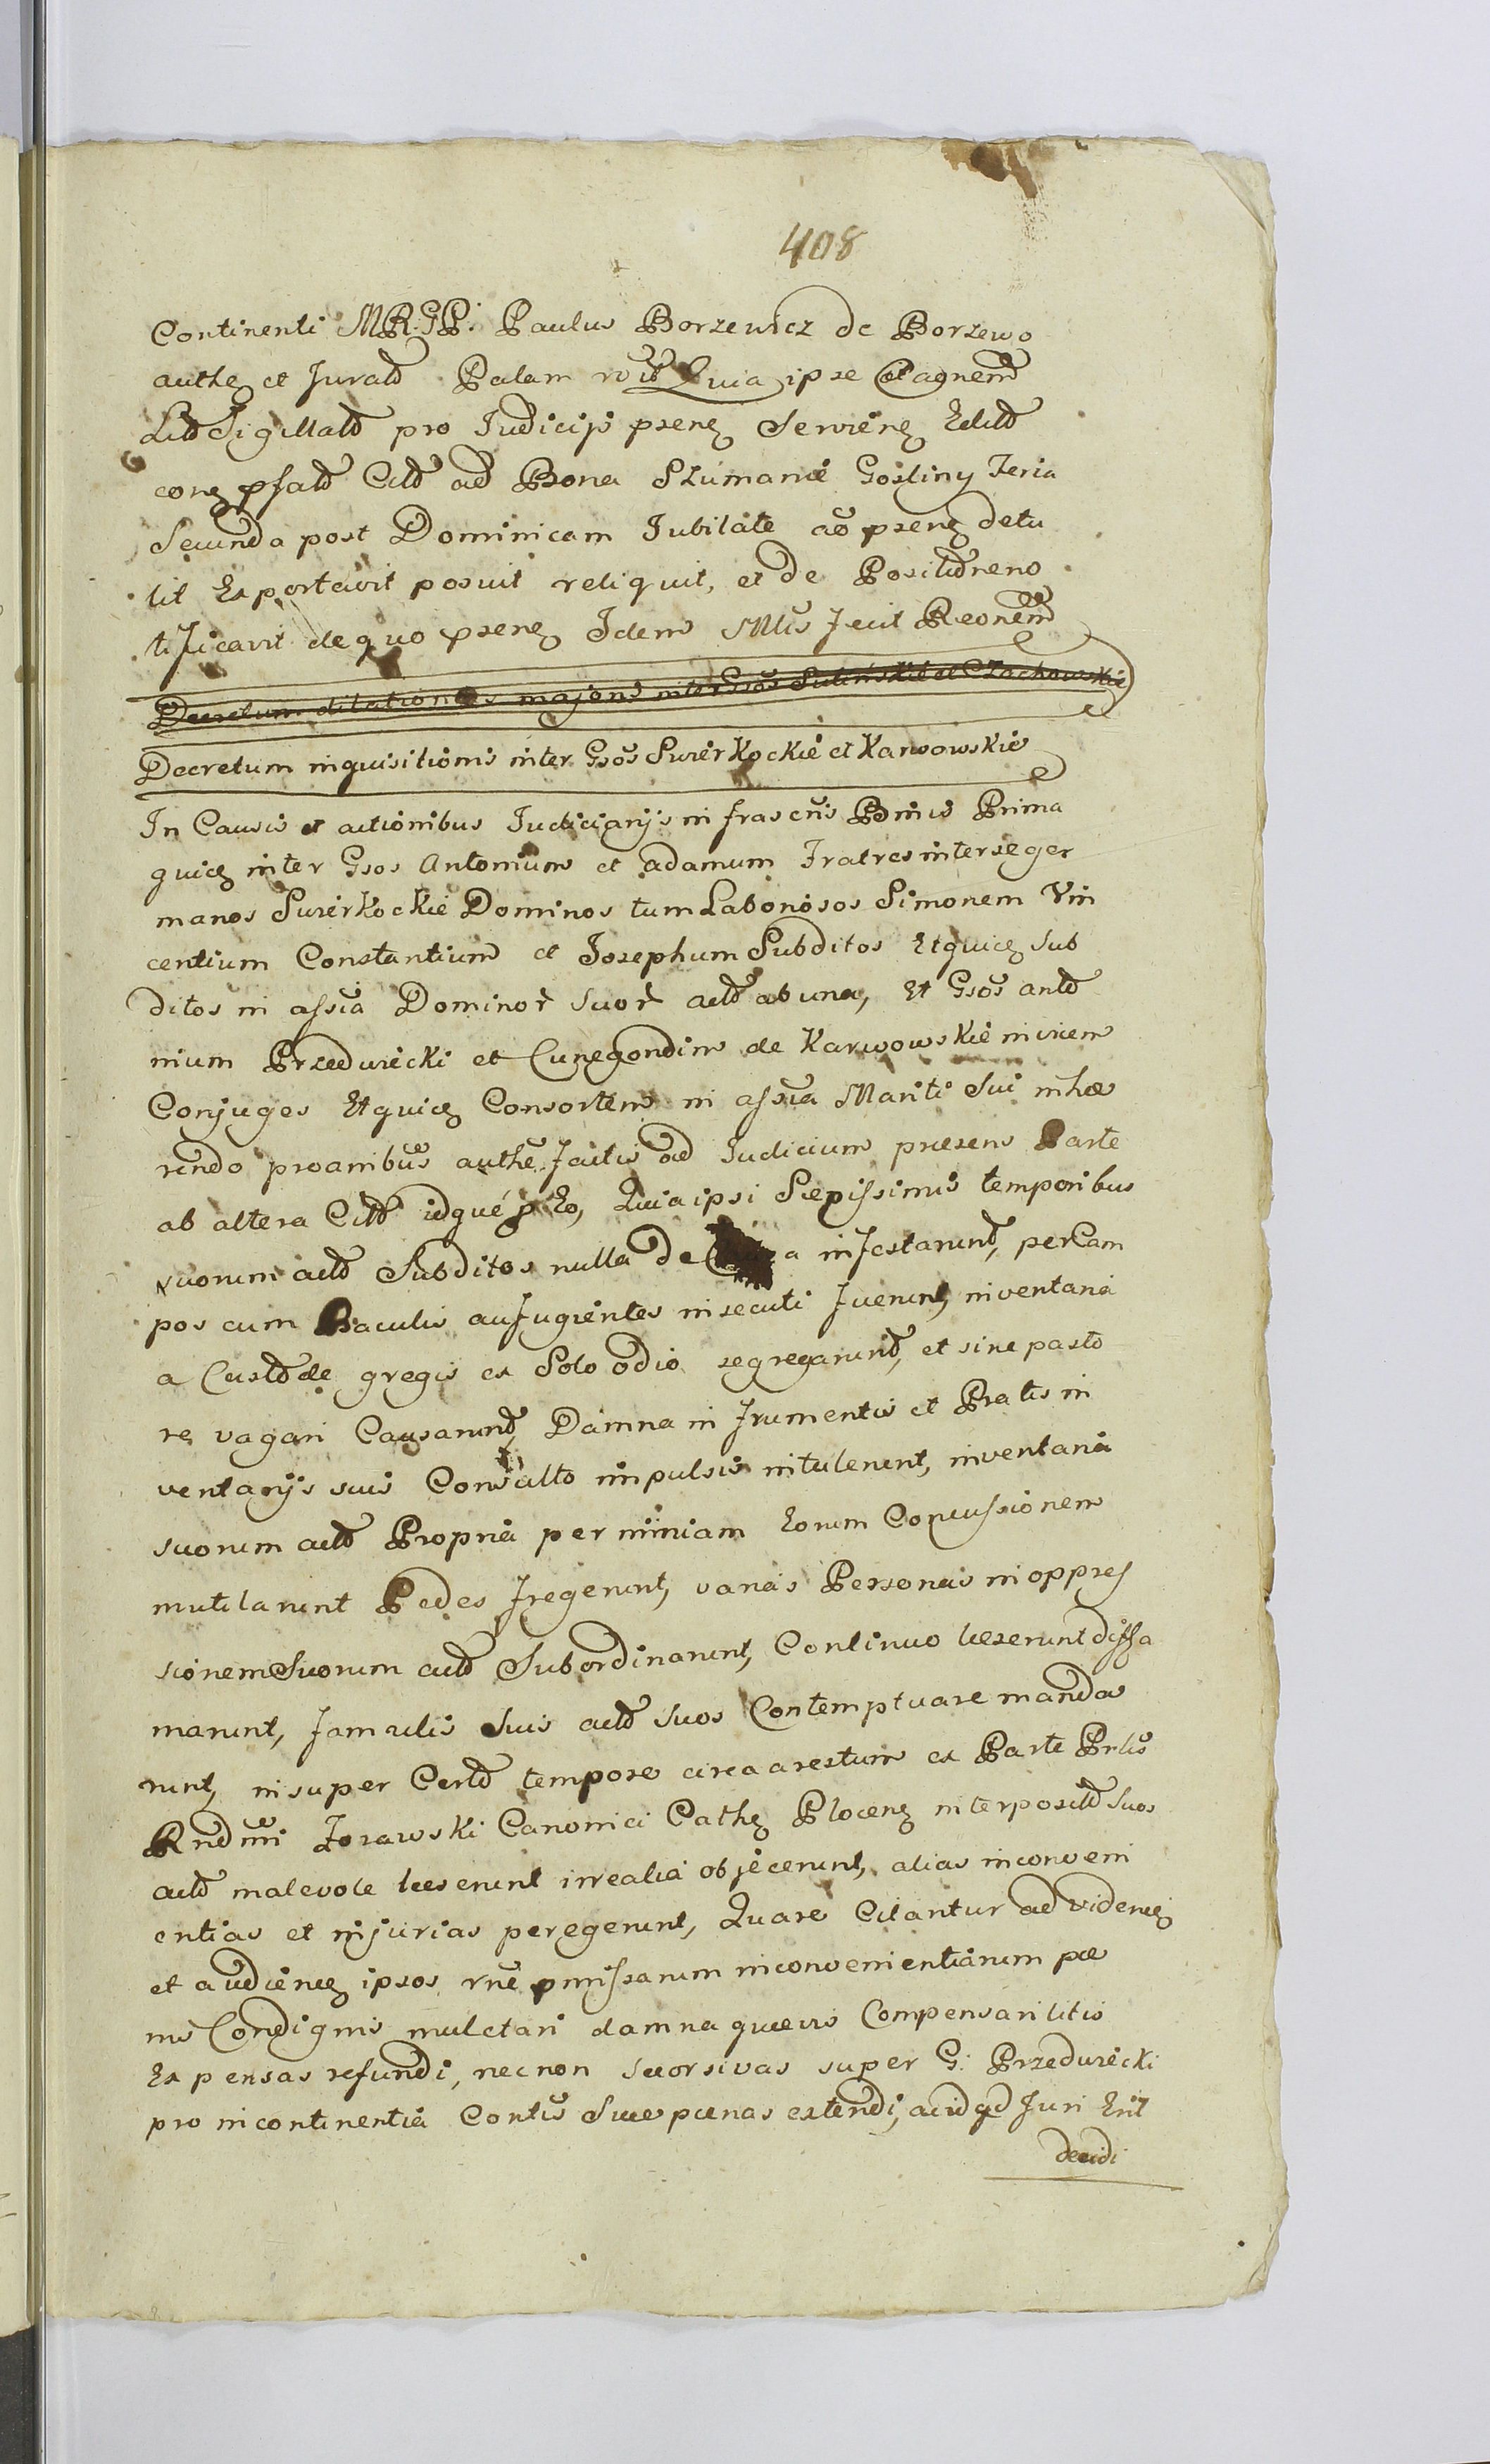 408
Continenti MRGP: Paulus Borzewicz de Borzewo
authe et Jurat Palam Quia ipse Citaonem
Litt Sigillatt pro Judicijs psens Serviens Editt
cong psatt Citt ad Bona Szumanie Gośliny Feria
Secunda post Dominicam Jubilate ao psens detu
lit Exportavit posuit reliquit, et de Positione no
tificavit de quo psens Idem Mlis fecit Reonem
Decretum dilationis majoris inter Gsos Suliński et Czachowskie
Decretum inquisitionis inter Gsos Swierkockie et Karwowskie
In Causis et actionibus Judiciarijs infrascris Binis Prima
quid inter Gsos Antonium et Adamum Fratres inter se ger
manos Swierkockie Dominos tum Laboriosos Simonem Vin
centium Constantium et Josephum Subditos Et quid Sub
ditos in assia Dominor Suor actt ab una, Et Gsos anto
nium Przedwiecki et Cunegondim de Karwowskie invicem
Conjuges Et quid Consortem in assia Mariti Sui inhæ
rendo proaribus authe factis ad Judicium præsens Parte
ab altera Citt idque p Eo, Quia ipsi Sæpissimis temporibus
suorum actt Subditos nulla de Causa infestarunt, per Cam
pos cum Baculis aufugientes insecuti fuerunt, inventaria
a Custode gregis ex Solo odio segregarunt, et sine pasto
re vagari Causarunt, Damna in frumentis et Pratis in
ventarijs suis Consulto impulsis intulerunt, inventaria
suorum actt Propria per nimiam Eorum Concussionem
mutilarunt Pedes fregerunt, varias Personas in oppres
sionem Suorum actt Subordinarunt, Continuo læserunt diffa
marunt, famulis Suis actt Suos Contemptuare manda
runt, insuper Certo tempore circa arestum ex Parte Prlis
Rndmi Zorawski Canonici Cathe Plocens interpositt Suos
actt malevole læserunt irrealia objecerunt, alias inconveni
entias et injurias peregerunt, Quare Citantur ad vidend
et audiend ipsos rne pmissarum inconvenientiarum pæ
nis Condignis mulctari damna quævis Compensari litis
Expensas refundi, nec non seorsivas super G: Przedwiecki
pro incontinentia Contis Suæ pænas extendi, ac id qd Juri Erit
decidi